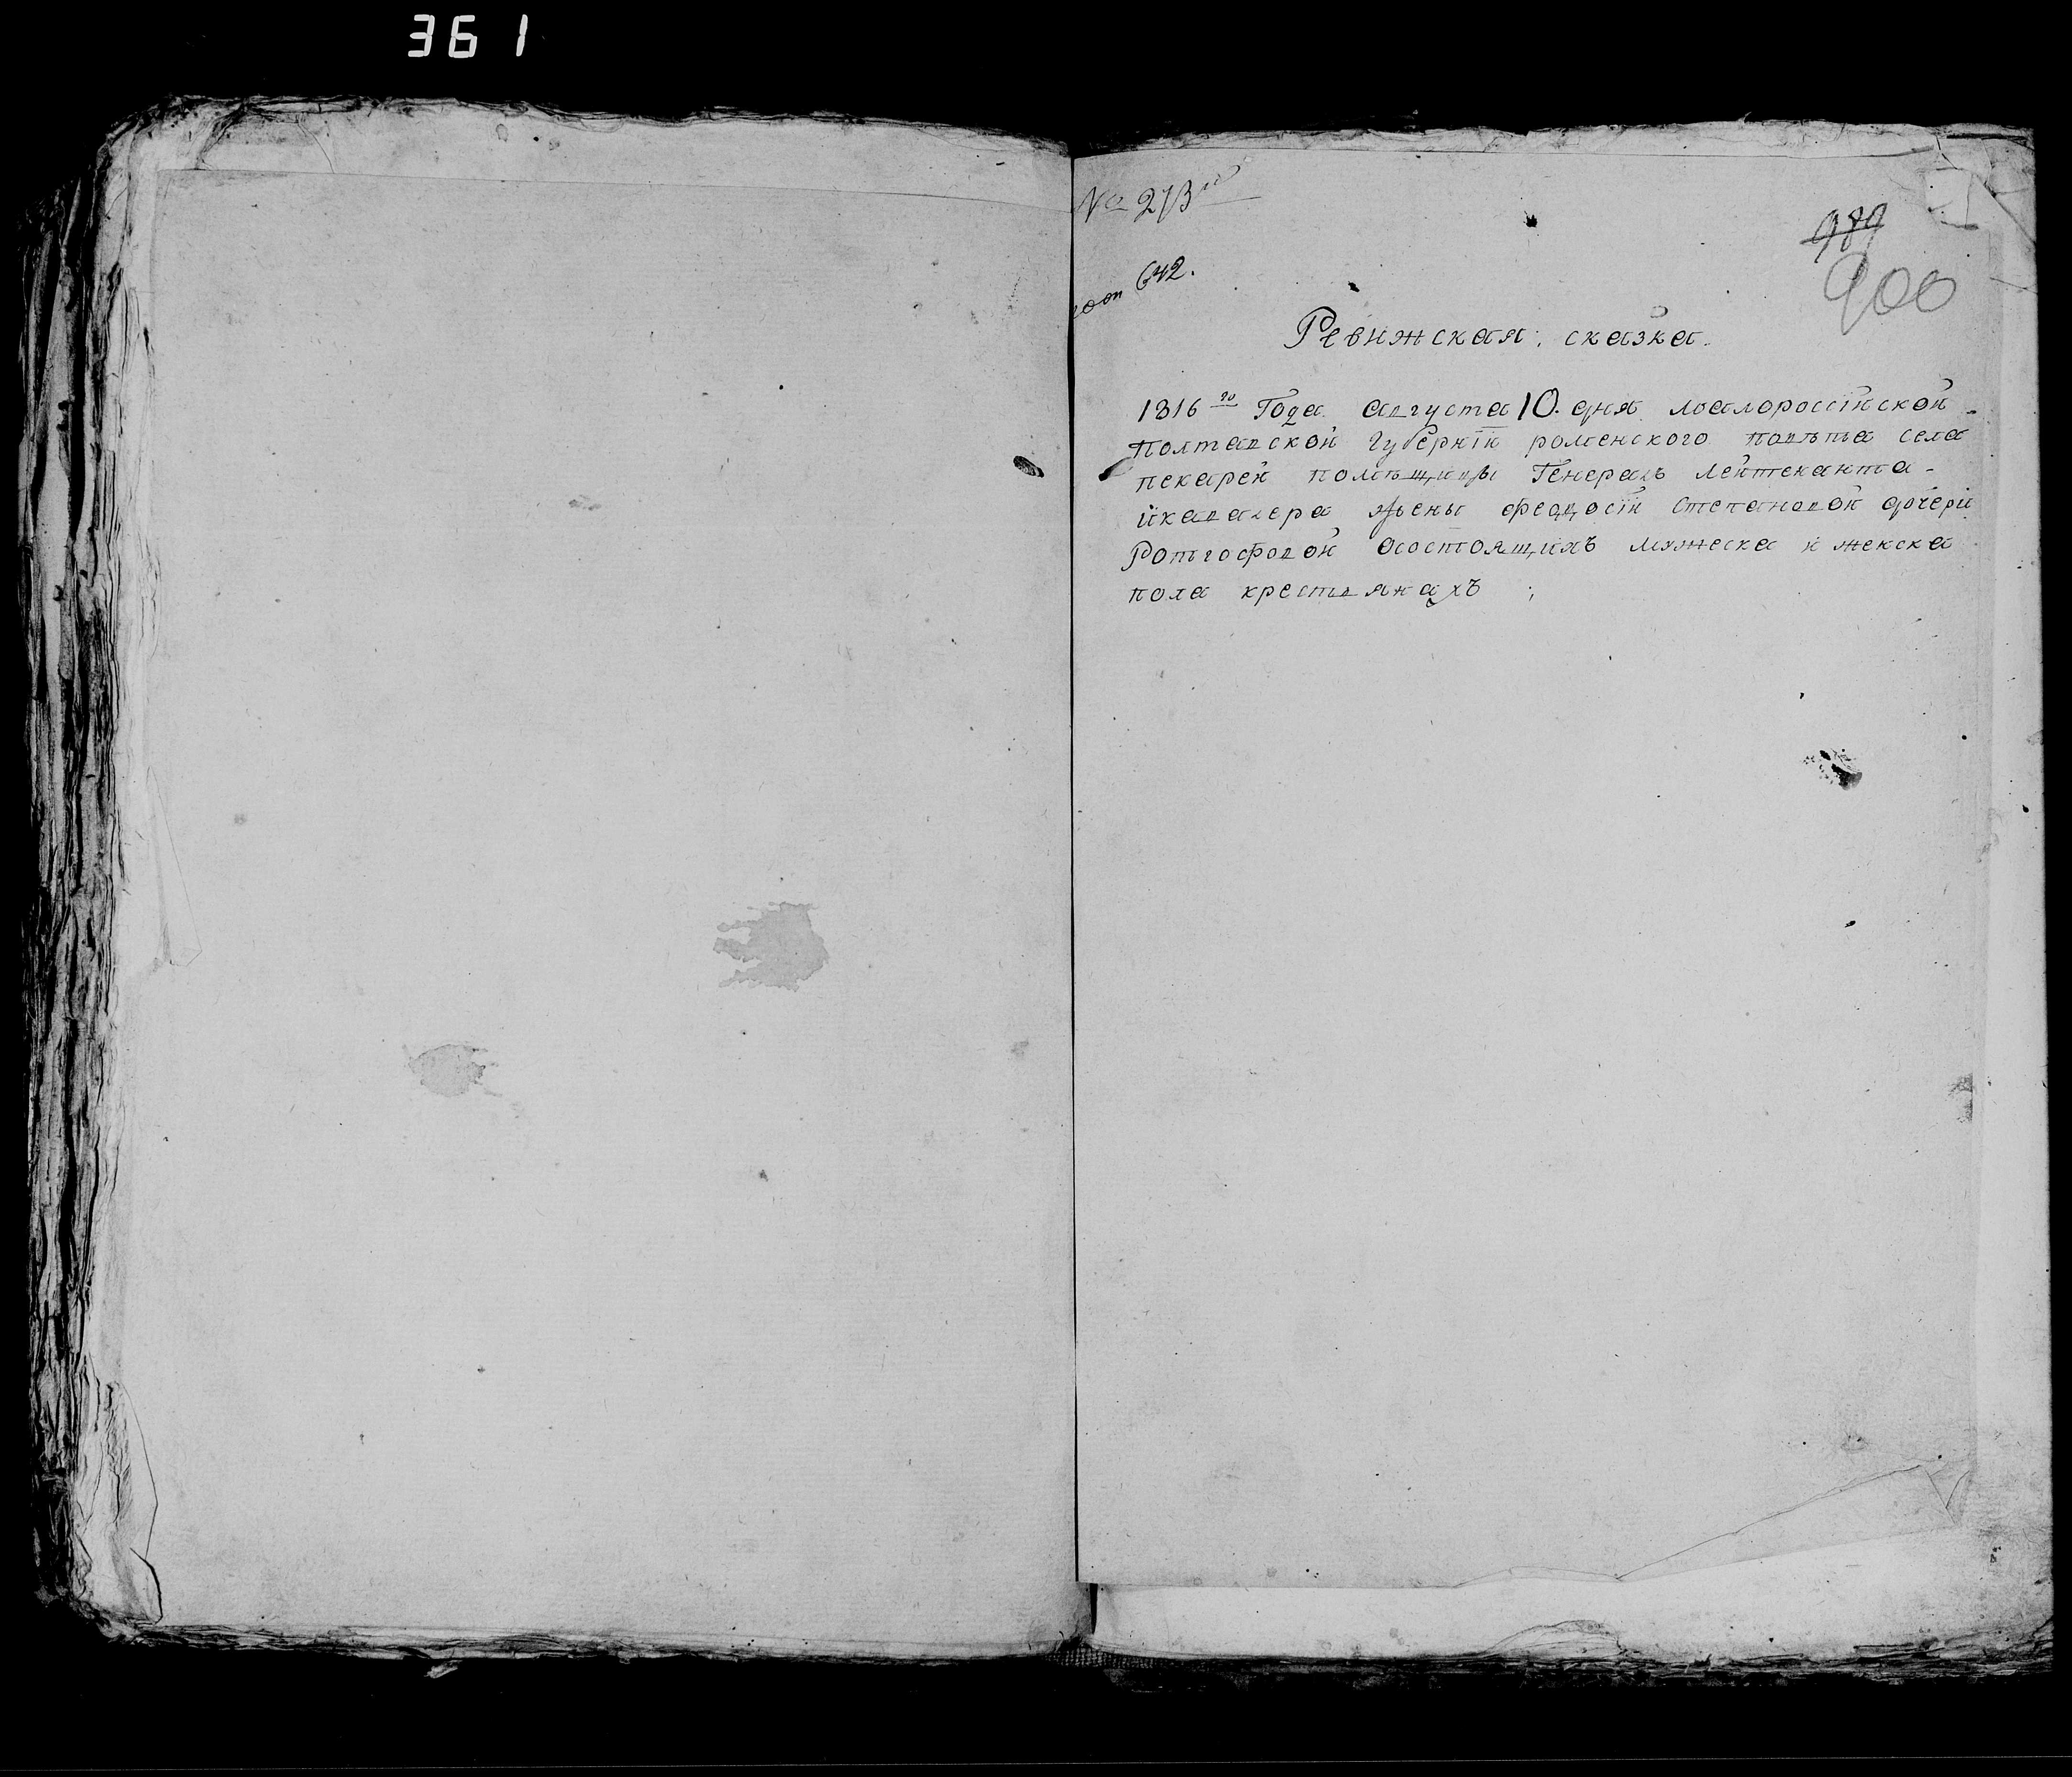 361
№ 273
642.
989
900
Ревижская: сказка.
1816 го Года августа 10. дня малороссійской
полтавской Губерніи роменского повѣта села
пекарей помѣщицы Генералъ лейтенанта-
икавалера жены феодосіи Степановой дочери
осостоящихъ мужеска и женска
пола крестьянахъ